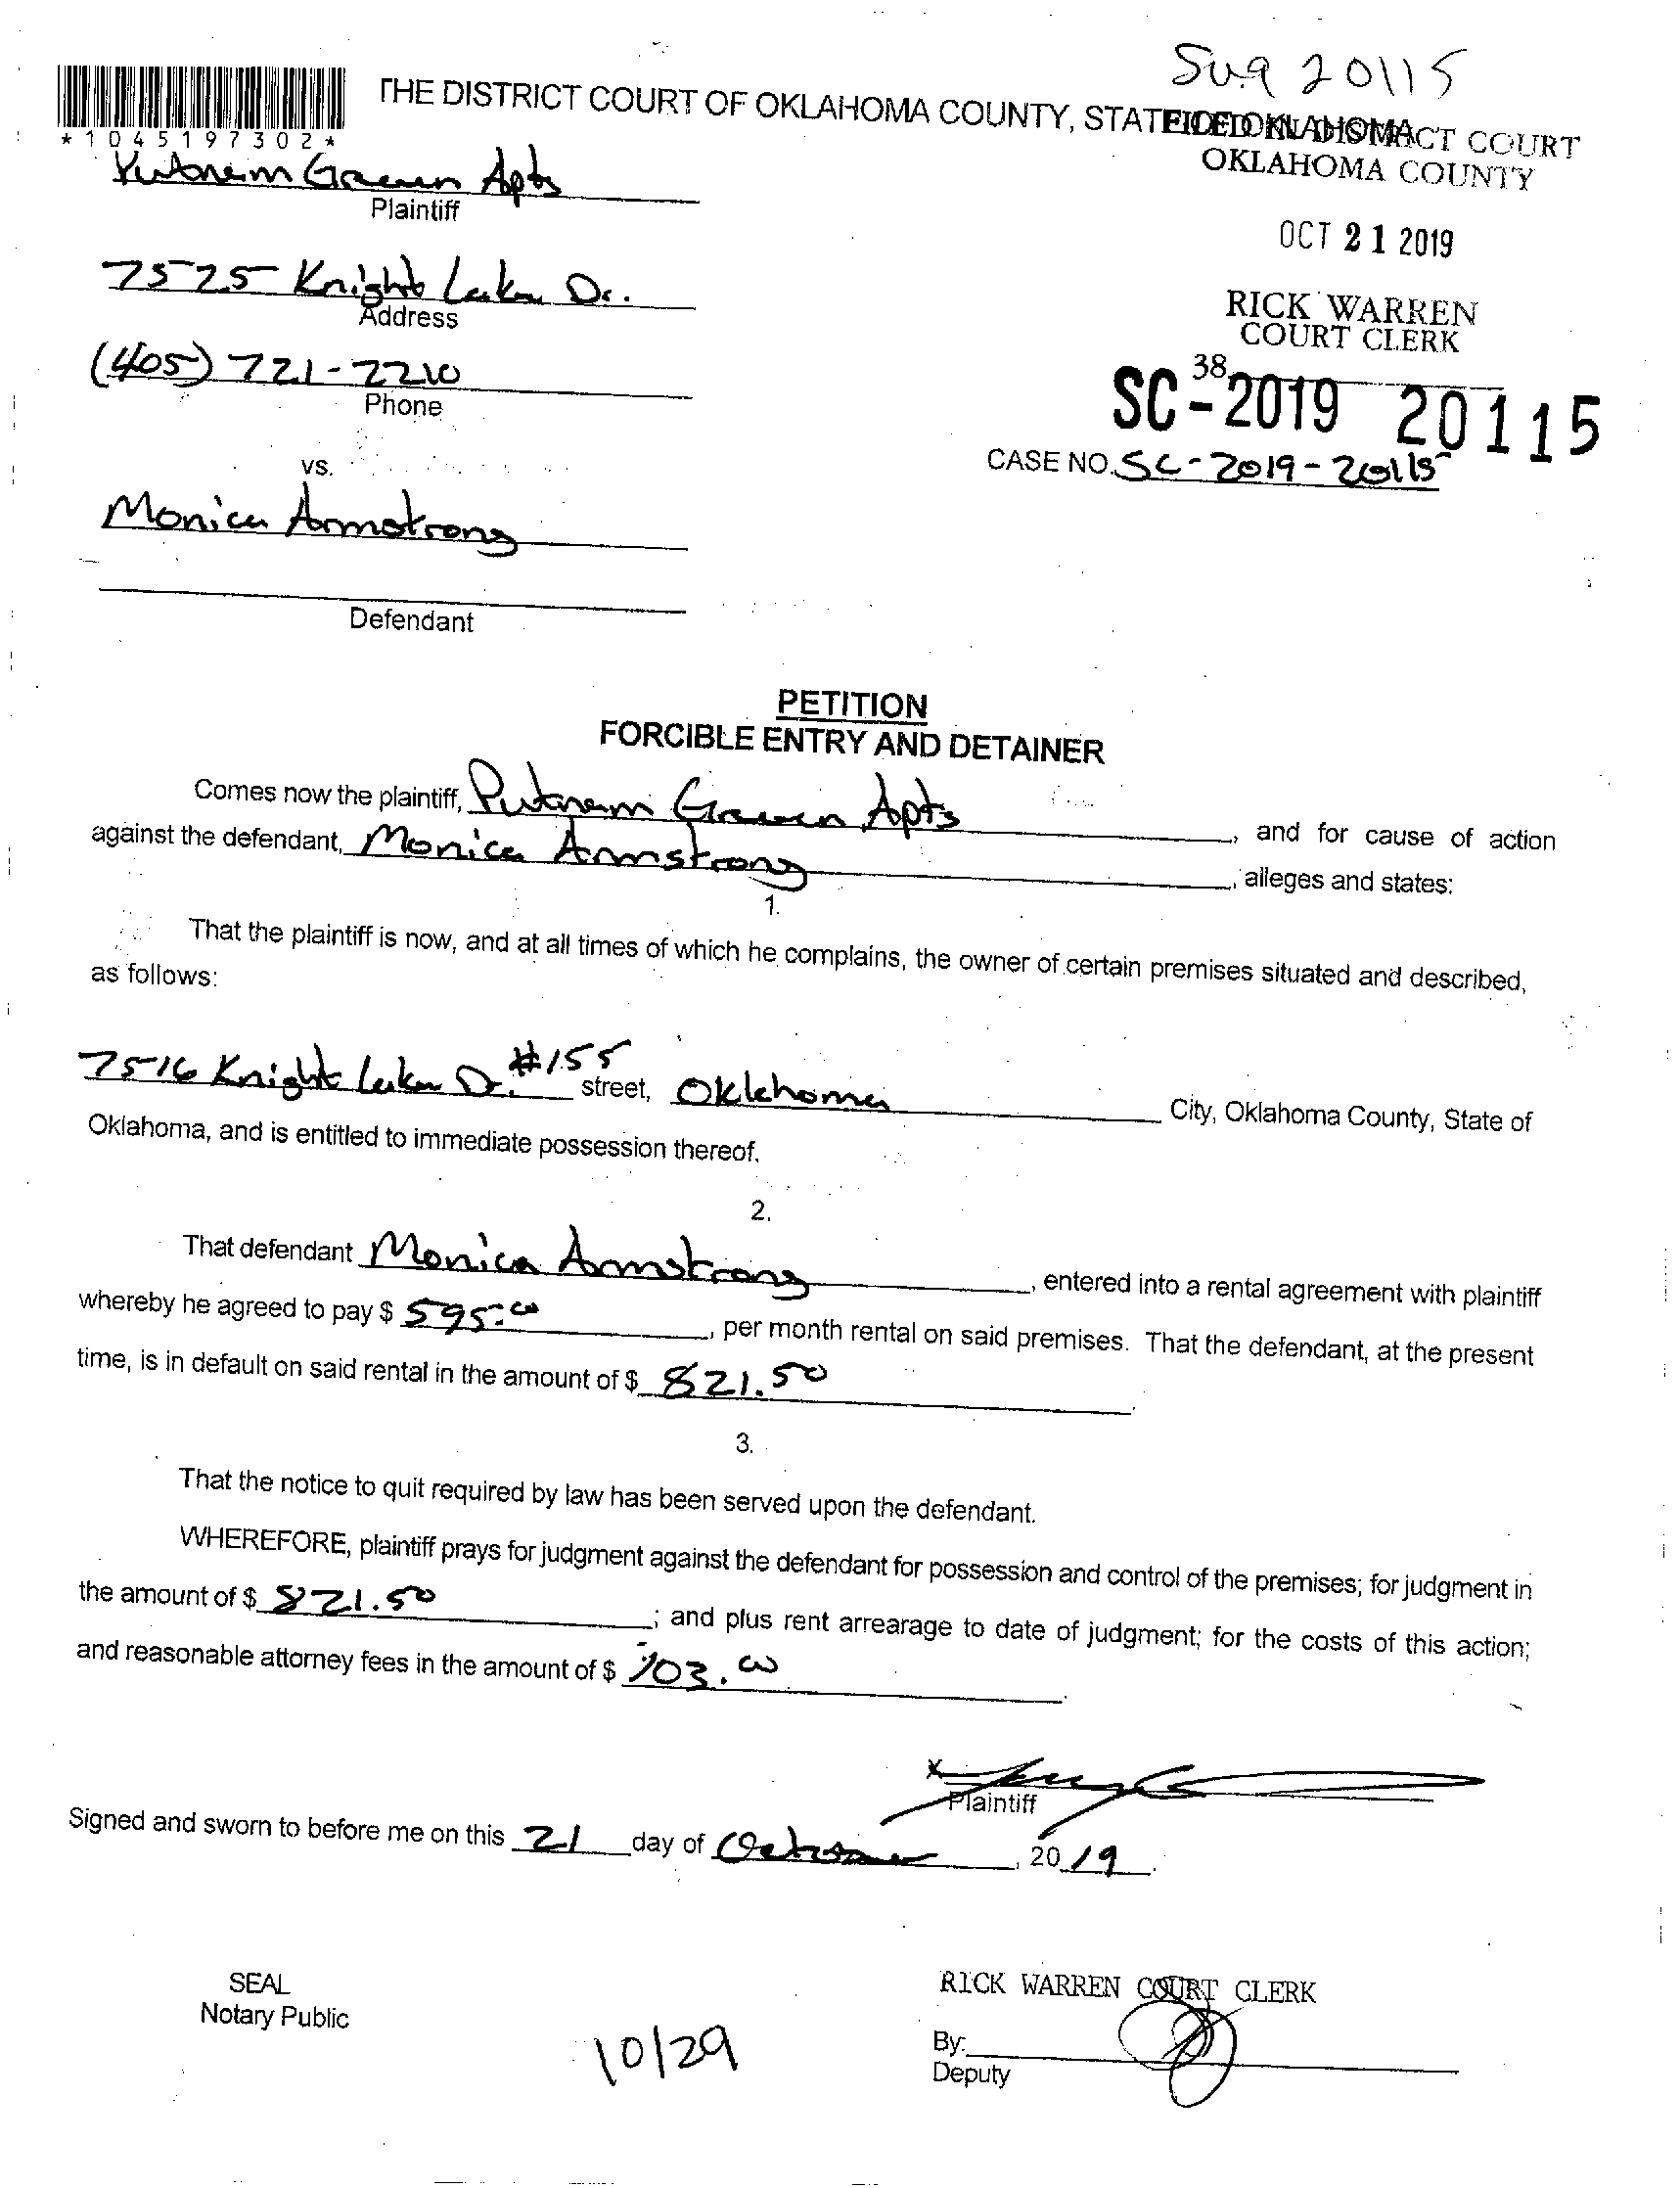 Sug 20115
THE DISTRICT COURT OF OKLAHOMA COUNTY, STATE OF OKLAHOMA
FILED IN DISTRICT COURT
OKLAHOMA COUNTY
*1045197302*
Putnam Green Apts
Plaintiff
OCT 21 2019
7525 Knight Lake Dr.
Address
RICK WARREN
COURT CLERK
(405) 721-2210
Phone
38
SC-2019 20115
CASE NO. SC-2019-20115
vs.
Monica Armstrong
Defendant
PETITION
FORCIBLE ENTRY AND DETAINER
Comes now the plaintiff, Putnam Green Apts, and for cause of action
against the defendant, Monica Armstrong, alleges and states:
1.
That the plaintiff is now, and at all times of which he complains, the owner of certain premises situated and described,
as follows:
7516 Knight Lake Dr. #155 street, Oklahoma City, Oklahoma County, State of
Oklahoma, and is entitled to immediate possession thereof.
2.
That defendant Monica Armstrong, entered into a rental agreement with plaintiff
whereby he agreed to pay $ 595.00, per month rental on said premises. That the defendant, at the present
time, is in default on said rental in the amount of $ 821.50.
3.
That the notice to quit required by law has been served upon the defendant.
WHEREFORE, plaintiff prays for judgment against the defendant for possession and control of the premises; for judgment in
the amount of $ 821.50; and plus rent arrearage to date of judgment; for the costs of this action;
and reasonable attorney fees in the amount of $ 103.00.
x
Plaintiff
Signed and sworn to before me on this 21 day of October, 20 19.
SEAL
Notary Public
10/29
RICK WARREN COURT CLERK
By:
Deputy